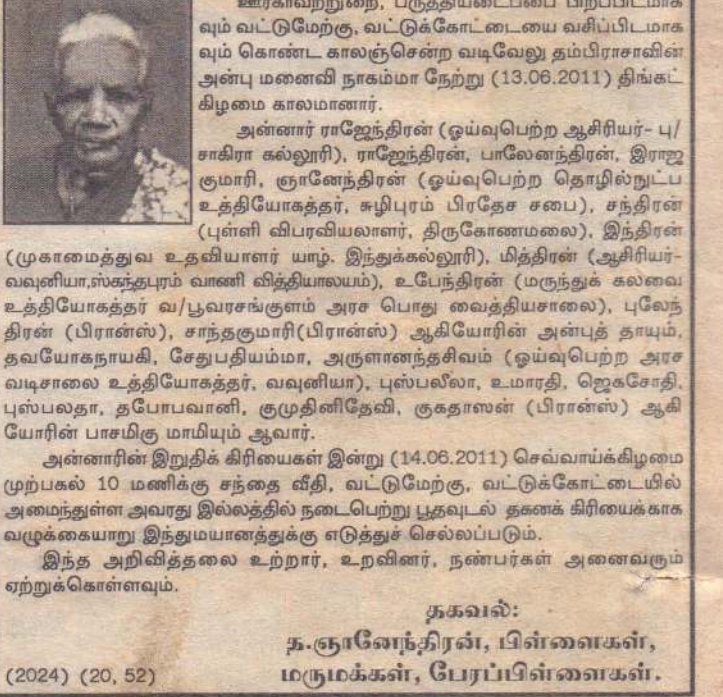 ஊர்காவற்றுறை, பருத்தியடைப்பை பிறப்பிடமாக
வும் வட்டுமேற்கு, வட்டுக்கோட்டையை வசிப்பிடமாக
வும் கொண்ட காலஞ்சென்ற வடிவேலு தம்பிராசாவின்
அன்பு மனைவி நாகம்மா நேற்று (13.06.2011) திங்கட்
கிழமை காலமானார்.
அன்னார் ராஜேந்திரன் (ஓய்வுபெற்ற ஆசிரியர்- பு/
சாகிரா கல்லூரி), ராஜேந்திரன், பாலேனந்திரன், இராஜ
குமாரி, ஞானேந்திரன் (ஓய்வுபெற்ற தொழில்நுட்ப
உத்தியோகத்தர், சுழிபுரம் பிரதேச சபை), சந்திரன்
(புள்ளி விபரவியலாளர், திருகோணமலை), இந்திரன்
(முகாமைத்துவ உதவியாளர் யாழ். இந்துக்கல்லூரி), மித்திரன் (ஆசிரியர்-
வவுனியா,ஸ்கந்தபுரம் வாணி வித்தியாலயம்), உபேந்திரன் (மருந்துக் கலவை
உத்தியோகத்தர் வ/பூவரசங்குளம் அரச பொது வைத்தியசாலை), புலேந்
திரன் (பிரான்ஸ்), சாந்தகுமாரி(பிரான்ஸ்) ஆகியோரின் அன்புத் தாயும்,
தவயோகநாயகி, சேதுபதியம்மா, அருளானந்தசிவம் (ஓய்வுபெற்ற அரச
வடிசாலை உத்தியோகத்தர், வவுனியா), புஸ்பலீலா, உமாரதி, ஜெகசோதி,
புஸ்பலதா, தபோபவானி, குமுதினிதேவி, குகதாஸன் (பிரான்ஸ்) ஆகி
யோரின் பாசமிகு மாமியும் ஆவார்.
அன்னாரின் இறுதிக் கிரியைகள் இன்று (14.06.2011) செவ்வாய்க்கிழமை
முற்பகல் 10 மணிக்கு சந்தை வீதி, வட்டுமேற்கு, வட்டுக்கோட்டையில்
அமைந்துள்ள அவரது இல்லத்தில் நடைபெற்று பூதவுடல் தகனக் கிரியைக்காக
வழுக்கையாறு இந்துமயானத்துக்கு எடுத்துச் செல்லப்படும்.
இந்த அறிவித்தலை உற்றார், உறவினர், நண்பர்கள் அனைவரும்
ஏற்றுக்கொள்ளவும்.
தகவல்:
த.ஞானேந்திரன், பிள்ளைகள்,
(2024) (20, 52) மருமக்கள், பேரப்பிள்ளைகள்.